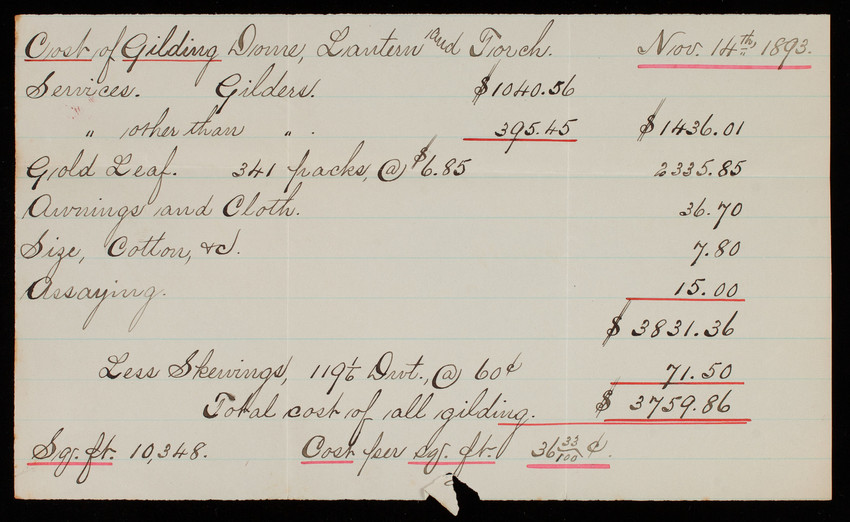 Cost of Gilding Dome, Lantern and Torch. Nov. 14th, 1893.
Services. Gilders. $1040.56
" other than " . 395.45 $1436.01
Gold Leaf. 341 packs, @ $6.85 2335.85
Awnings and Cloth. 36.70
Size, Cotton, &c. 7.80
Assaying. 15.00
$ 3831.36
Less Skewings, 119 1/6 Dwt., @ 60¢ 71.50
Total cost of all gilding. $ 3759.86
Sq. ft. 10,348. Cost per sq. ft. 36 33/100 ¢.